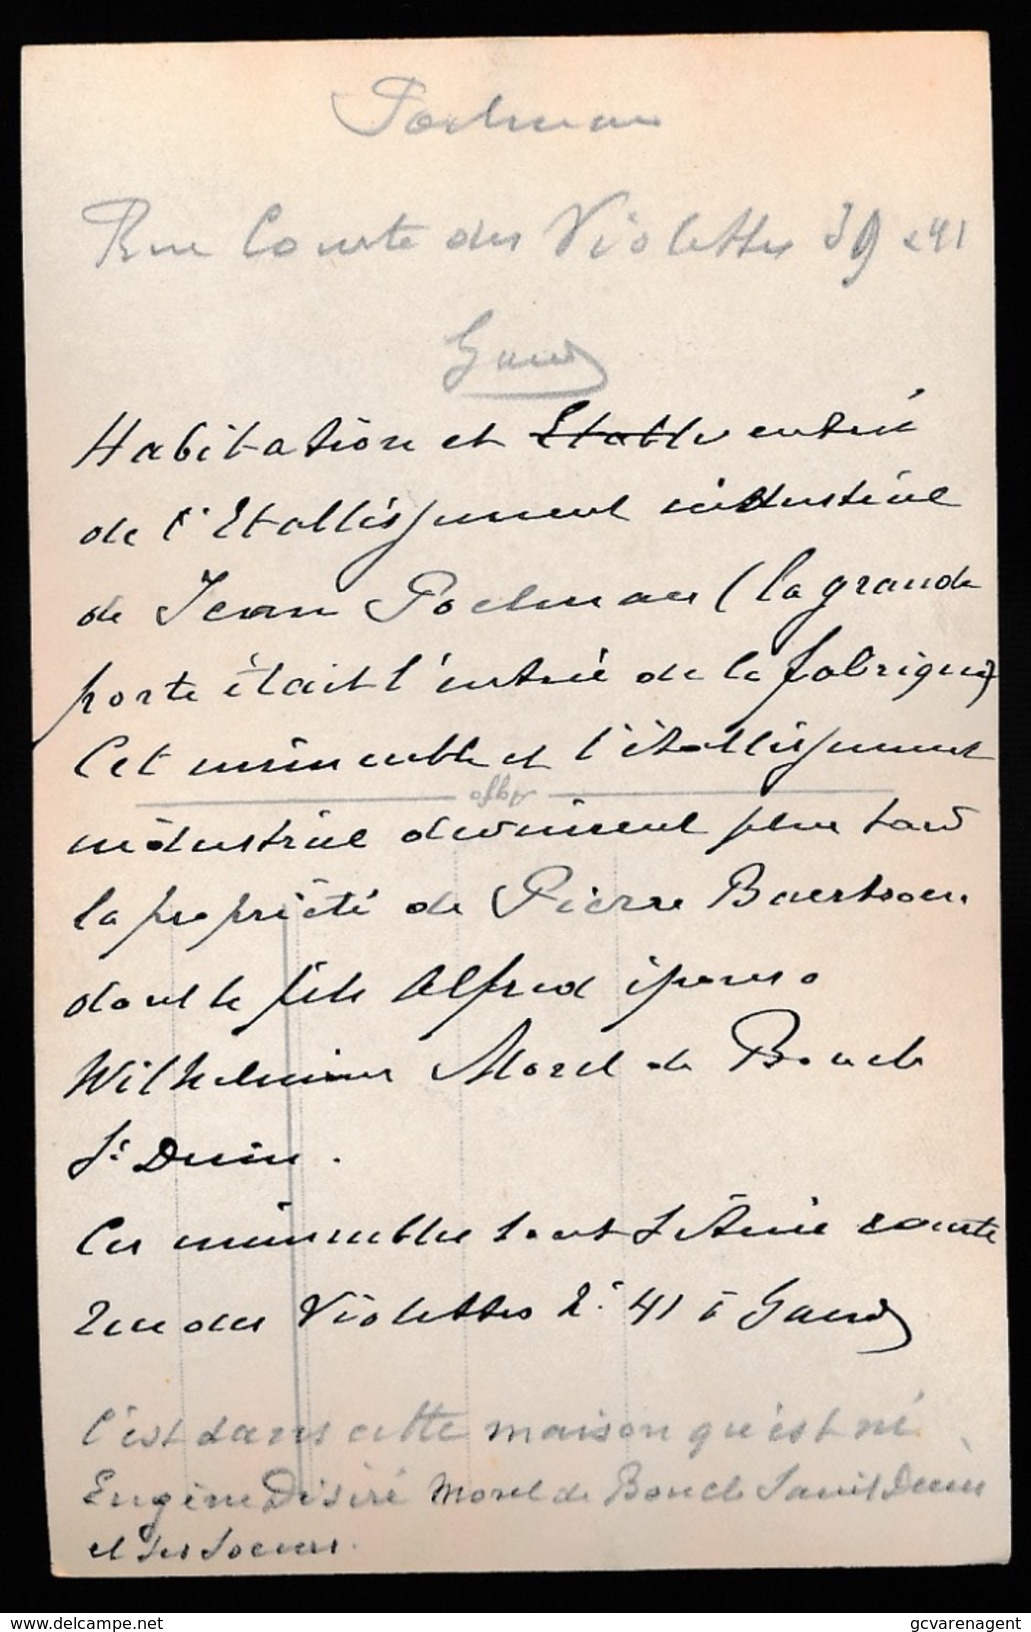 Poelman
Rue Courte des Violettes 39 & 41
Gand
Habitation et Etabl entrée
de l'Etablissement industriel
de Jean Poelman (la grande
porte était l'entrée de la fabrique)
Cet immeuble et l'établissement
industriel devinrent plus tard
la propriété de Pierre Baertsoen
dont le fils Alfred épousa
Wilhelmine Morel de Boucle
St Denis.
Ces immeubles sont situés courte
rue des Violettes n° 41 à Gand
C'est dans cette maison qu'est né
Eugène Désiré Morel de Boucle Saint Denis
et ses soeurs.
www.delcampe.net
gcvarenagent